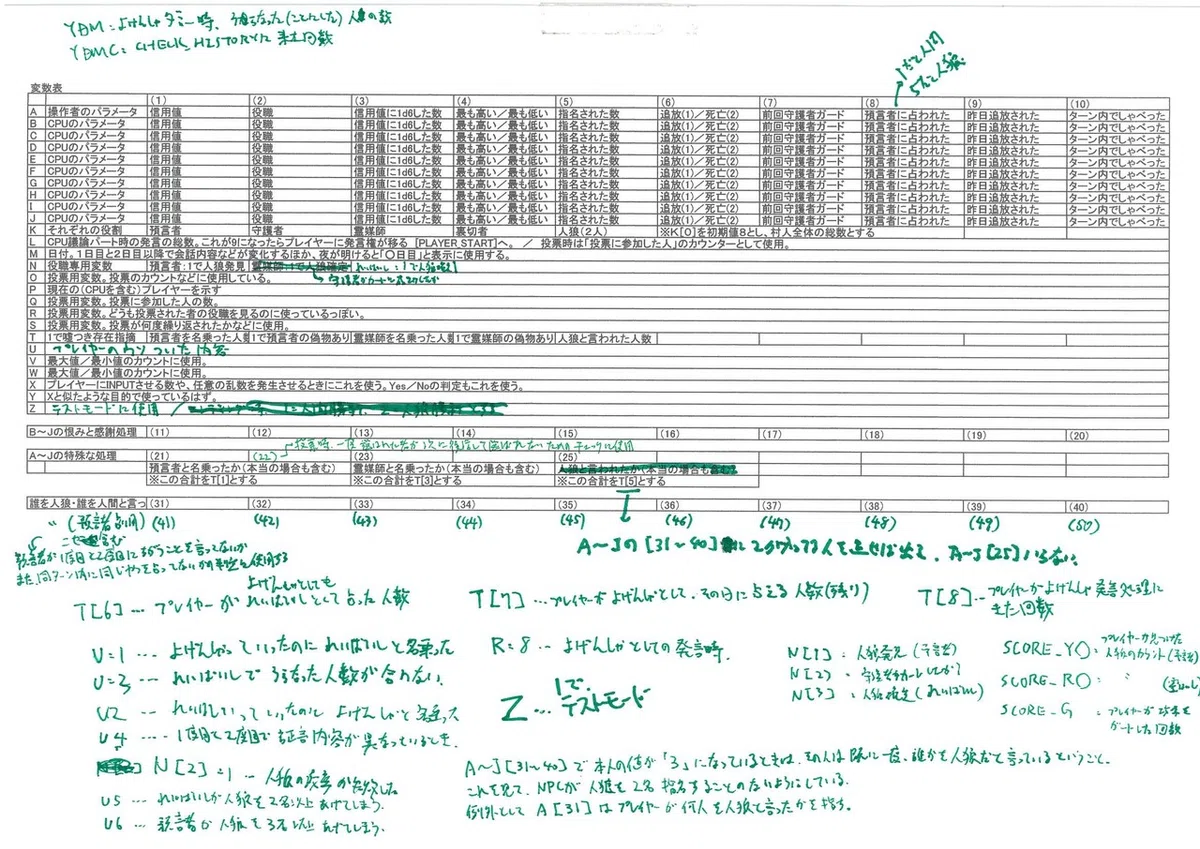 YDM = よげんしゃダミー時、うらなった(ことにした)人の数
YDMC = CHECK_HISTORYに来た回数
1だと人間
5だと人狼
変数表
(1) (2) (3) (4) (5) (6) (7) (8) (9) (10)
A 操作者のパラメータ 信用値 役職 信用値に1d6した数 最も高い/最も低い 指名された数 追放(1)/死亡(2) 前回守護者ガード 預言者に占われた 昨日追放された ターン内でしゃべった
B CPUのパラメータ 信用値 役職 信用値に1d6した数 最も高い/最も低い 指名された数 追放(1)/死亡(2) 前回守護者ガード 預言者に占われた 昨日追放された ターン内でしゃべった
C CPUのパラメータ 信用値 役職 信用値に1d6した数 最も高い/最も低い 指名された数 追放(1)/死亡(2) 前回守護者ガード 預言者に占われた 昨日追放された ターン内でしゃべった
D CPUのパラメータ 信用値 役職 信用値に1d6した数 最も高い/最も低い 指名された数 追放(1)/死亡(2) 前回守護者ガード 預言者に占われた 昨日追放された ターン内でしゃべった
E CPUのパラメータ 信用値 役職 信用値に1d6した数 最も高い/最も低い 指名された数 追放(1)/死亡(2) 前回守護者ガード 預言者に占われた 昨日追放された ターン内でしゃべった
F CPUのパラメータ 信用値 役職 信用値に1d6した数 最も高い/最も低い 指名された数 追放(1)/死亡(2) 前回守護者ガード 預言者に占われた 昨日追放された ターン内でしゃべった
G CPUのパラメータ 信用値 役職 信用値に1d6した数 最も高い/最も低い 指名された数 追放(1)/死亡(2) 前回守護者ガード 預言者に占われた 昨日追放された ターン内でしゃべった
H CPUのパラメータ 信用値 役職 信用値に1d6した数 最も高い/最も低い 指名された数 追放(1)/死亡(2) 前回守護者ガード 預言者に占われた 昨日追放された ターン内でしゃべった
I CPUのパラメータ 信用値 役職 信用値に1d6した数 最も高い/最も低い 指名された数 追放(1)/死亡(2) 前回守護者ガード 預言者に占われた 昨日追放された ターン内でしゃべった
J CPUのパラメータ 信用値 役職 信用値に1d6した数 最も高い/最も低い 指名された数 追放(1)/死亡(2) 前回守護者ガード 預言者に占われた 昨日追放された ターン内でしゃべった
K それぞれの役割 預言者 守護者 霊媒師 裏切者 人狼(2人) ※K[0]を初期値8とし、村人全体の総数とする
L CPU議論パート時の発言の総数。これが9になったらプレイヤーに発言権が移る [PLAYER_START]へ。 / 投票時は「投票に参加した人」のカウンターとして使用。
M 日付。1日目と2日目以降で会話内容などが変化するほか、夜が明けると「〇日目」と表示に使用する。
N 役職専用変数 預言者:1で人狼発見 霊媒師:1で人狼確定 れいばいし:1で人狼確定
O 投票用変数。投票のカウントなどに使用している。 守護者がガードに成功したか
P 現在の(CPUを含む)プレイヤーを示す
Q 投票用変数。投票に参加した人の数。
R 投票用変数。どうも投票された者の役職を見るのに使っているっぽい。
S 投票用変数。投票が何度繰り返されたかなどに使用。
T 1で嘘つき存在指摘 預言者を名乗った人数 1で預言者の偽物あり 霊媒師を名乗った人数 1で霊媒師の偽物あり 人狼と言われた人数
U プレイヤーのウソついた内容
V 最大値/最小値のカウントに使用。
W 最大値/最小値のカウントに使用。
X プレイヤーにINPUTさせる数や、任意の乱数を発生させるときにこれを使う。Yes/Noの判定もこれを使う。
Y Xと似たような目的で使っているはず。
Z テストモードに使用
B~Jの恨みと感謝処理 (11) (12) (13) (14) (15) (16) (17) (18) (19) (20)
投票時、一度選ばれた者が次に続けて選ばれないためのチェックに使用
A~Jの特殊な処理 (21) (22) (23) (25)
預言者と名乗ったか(本当の場合も含む) 霊媒師と名乗ったか(本当の場合も含む) 人狼と言われたか(本当の場合も含む)
※この合計をT[1]とする ※この合計をT[3]とする ※この合計をT[5]とする
誰を人狼・誰を人間と言っ (31) (32) (33) (34) (35) (36) (37) (38) (39) (40)
〃 (預言者専用) (41) (42) (43) (44) (45) (46) (47) (48) (49) (50)
ニセ含む
預言者が1度目と2度目にちがうことを言ってないか
また、同ターン内に同じやつを占ってないか判定に使用する
A~Jの[31~40]に2が入ってる人を足せば出る。A~J[25]いらない。
T[6]… プレイヤーがよげんしゃとしてもれいばいしとして占った人数
T[7]… プレイヤーがよげんしゃとして、その日に占える人数(残り)
T[8]… プレイヤーがよげんしゃ発言処理にきた回数
U=1 … よげんしゃっていったのにれいばいしと名乗った
U=3 … れいばいしでうらなった人数が合わない。
U2 … れいばいしっていったのによげんしゃと名乗った
U4 … 1度目と2度目で証言内容が異なっているとき。
N[2]=1 … 人狼の襲撃が失敗した
U5 … れいばいしが人狼を2名以上あげてしまう。
U6 … 預言者が人狼を3名以上あげてしまう。
R=8 … よげんしゃとしての発言時。
Z … 1でテストモード
N[1] : 人狼発見 (予言者)
N[2] : 守護者がガードしたか?
N[3] : 人狼確定 (れいばいし)
SCORE_YO : プレイヤーが見つけた人狼のカウント(予言者)
SCORE_RO : 〃 (霊ばいし)
SCORE_G : プレイヤーが攻撃をガードした回数
A~J[31~40]で本人の値が「3」になっているときは、その人は既に一度、誰かを人狼だと言っているということ。
これを見て、NPCが人狼を2名指名することのないようにしている。
例外として A[31]はプレイヤーが何人を人狼と言ったかを指す。